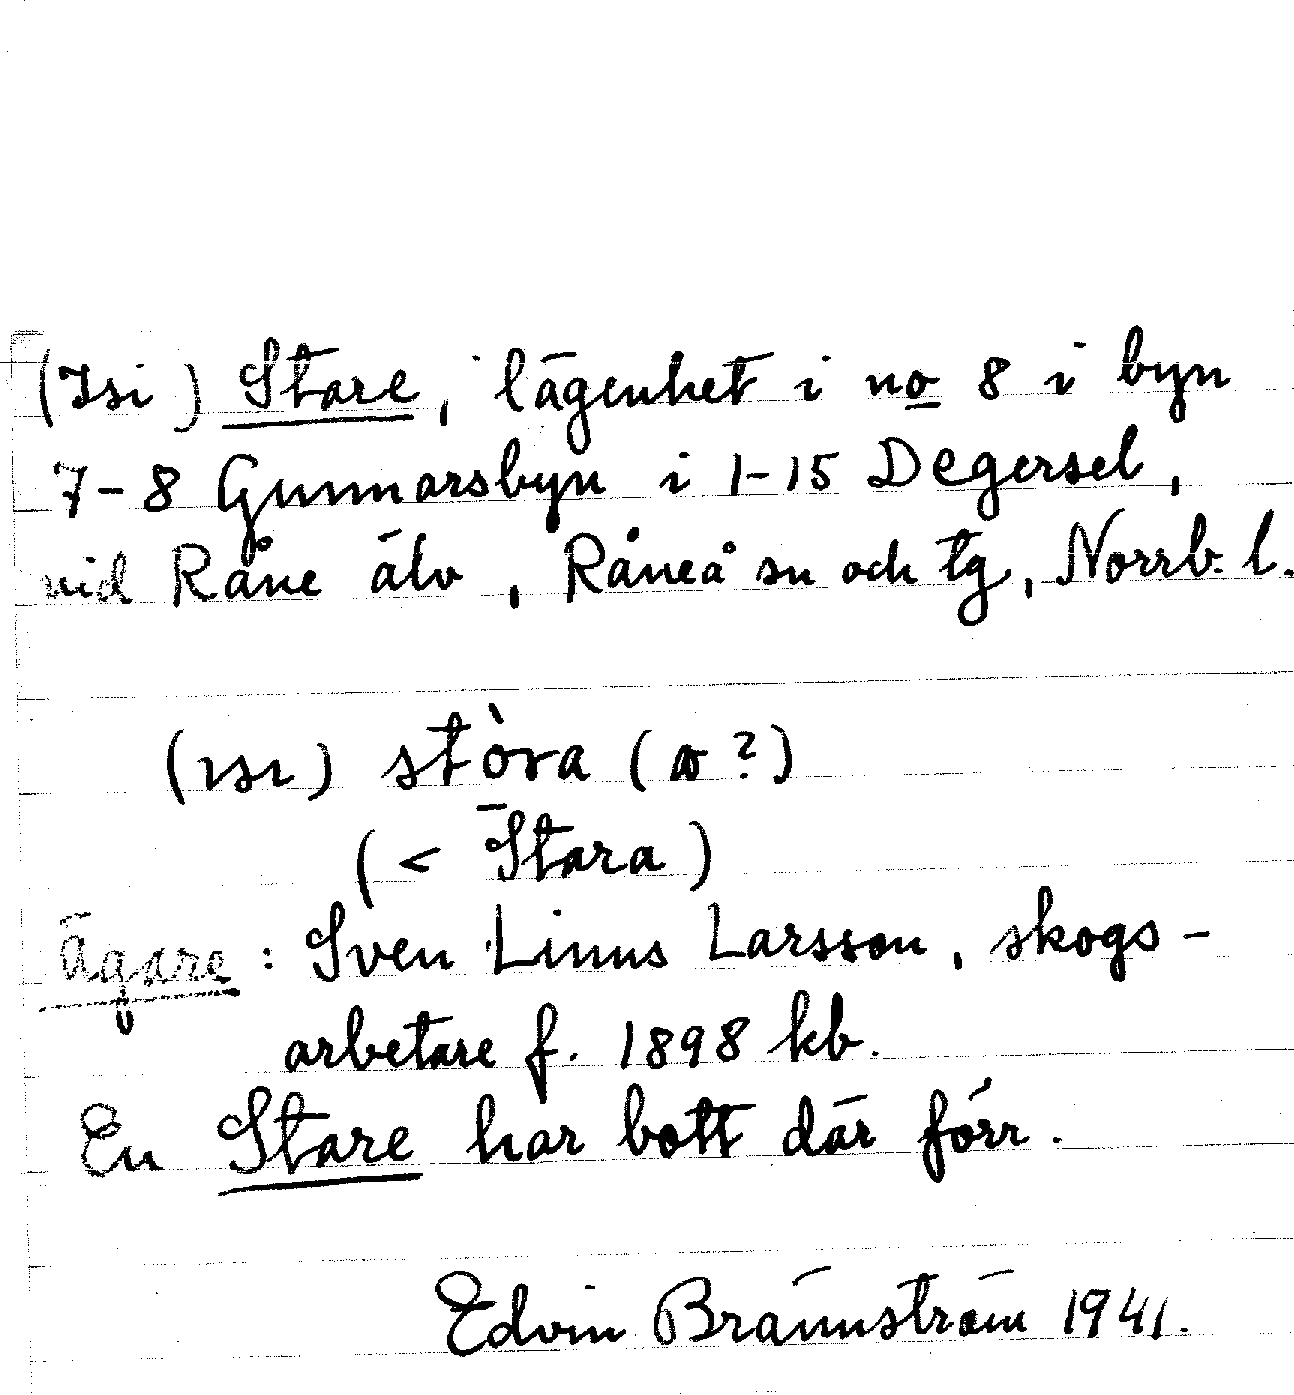 (Isi) Stare, lägenhet i no 8 i byn
7-8 Gunnarsbyn i 1-15 Degersel,
vid Råne älv, Råneå sn och tg, Norrb. l.
(ısı) stòra (a ?)
(< Stara)
Ägare: Sven Linus Larsson, skogs-
arbetare f. 1898 kb.
En Stare har bott där förr.
Edvin Brännström 1941.